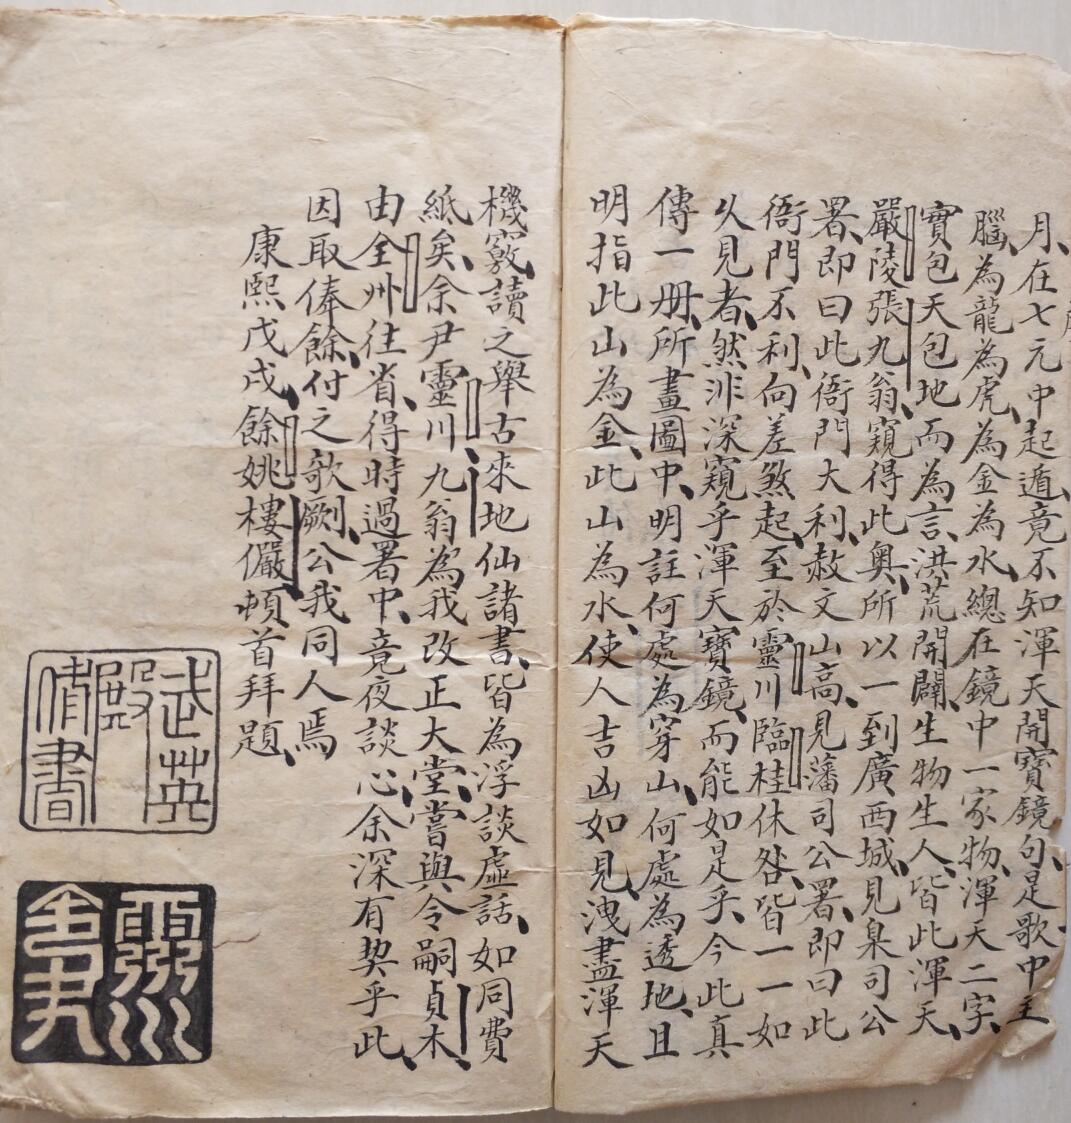 月、在七元中、起遁、竟不知渾天開寶鏡句、是歌中主
腦、為龍為虎、為金為水、總在鏡中一家物、渾天二字、
實包天包地而為言、洪荒開闢、生物生人、皆此渾天、
嚴陵張九翁、窺得此奧、所以一到廣西城、見臬司公
署、即曰此衙門大利、赦文山高、見藩司公署、即曰此
衙門不利、向差煞起、至於靈川臨桂休咎、皆一一如
久見者、然非深窺乎渾天寶鏡、而能如是乎、今此真
傳一冊、所畫圖中、明註何處為穿山、何處為透地、且
明指此山為金、此山為水、使人吉凶如見、洩盡渾天
機竅、讀之舉古來地仙諸書、皆為浮談虛話、如同費
紙矣、余尹靈川、九翁為我改正大堂、嘗與令嗣貞木、
由全州往省、得時過署中、竟夜談心、余深有契乎此、
因取俸餘、付之歌劂、公我同人焉
康熙戊戌、餘姚樓儼頓首拜題、
武英
殿
脩書
靈川
令尹